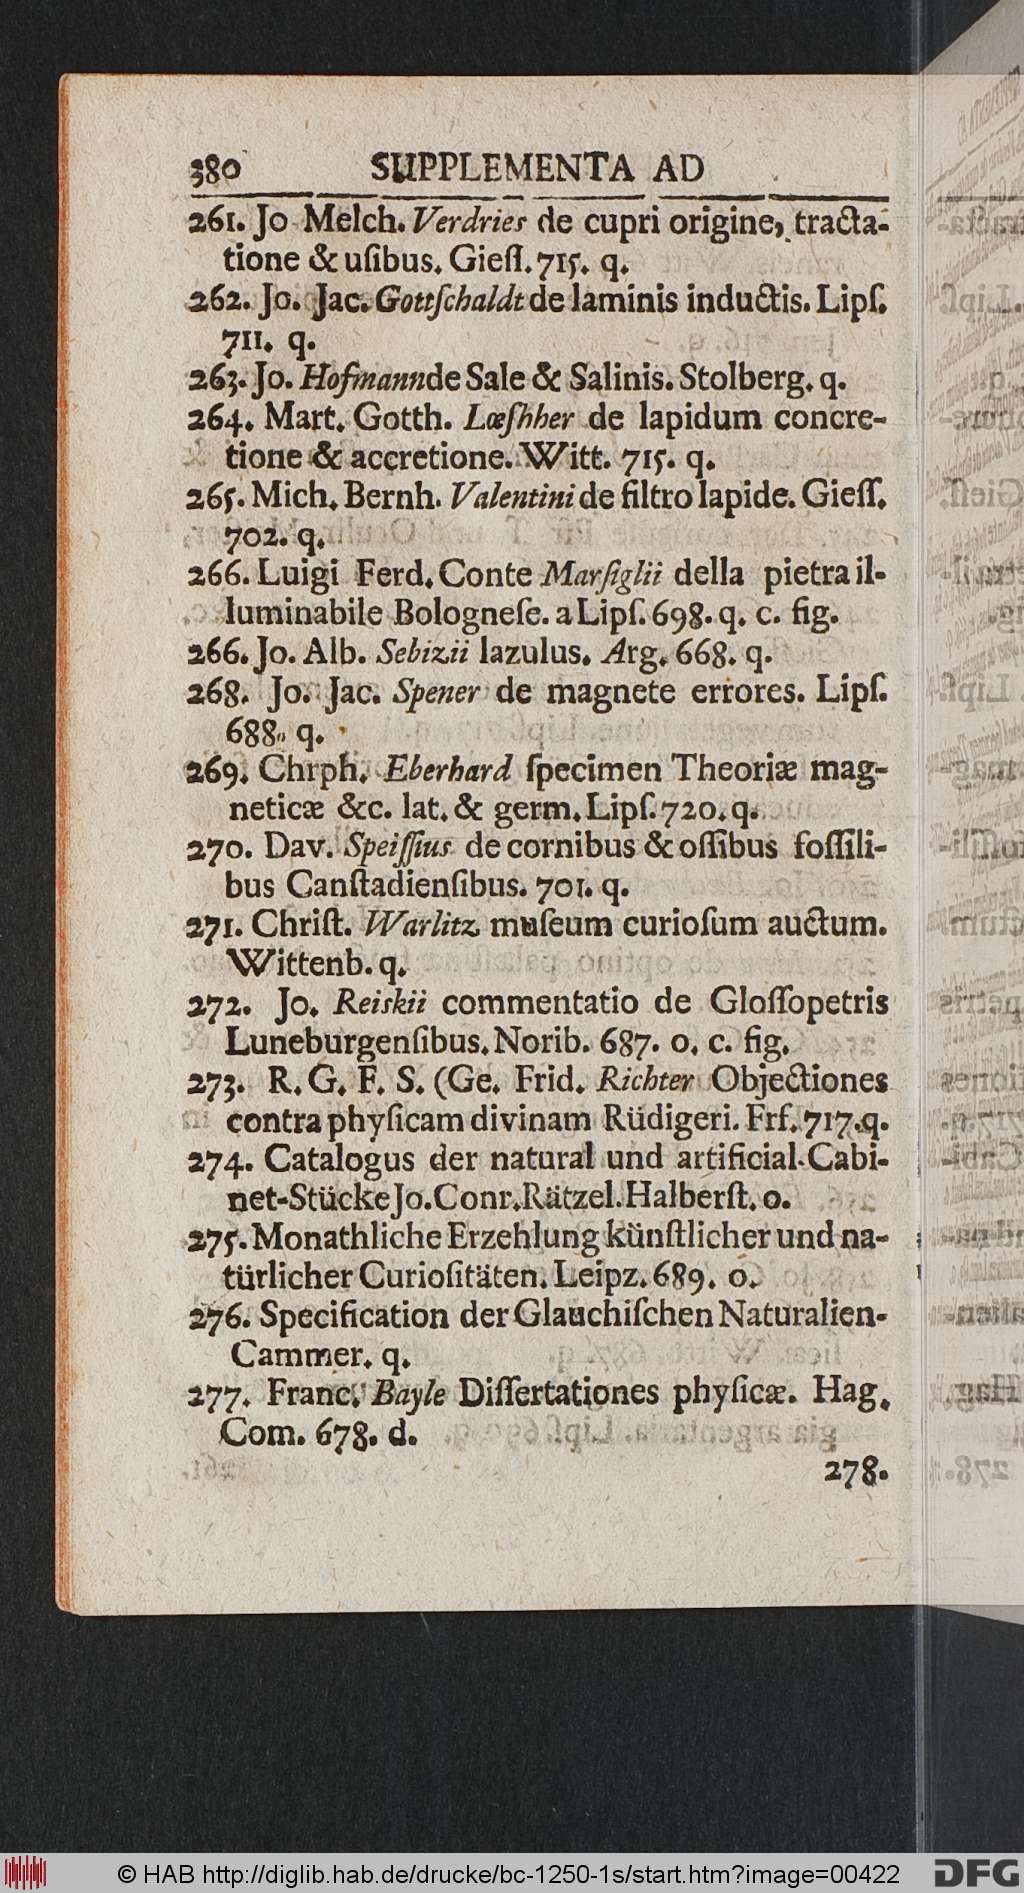 380 SUPPLEMENTA AD
261. Jo Melch. Verdries de cupri origine, tracta-
tione & uſibus. Gieſſ. 715. q.
262. Jo. Jac. Gottſchaldt de laminis inductis. Lipſ.
711. q.
263. Jo. Hofmann de Sale & Salinis. Stolberg. q.
264. Mart. Gotth. Lœſhher de lapidum concre-
tione & accretione. Witt. 715. q.
265. Mich. Bernh. Valentini de filtro lapide. Gieſſ.
702. q.
266. Luigi Ferd. Conte Marſiglii della pietra il-
luminabile Bologneſe. a Lipſ. 698. q. c. fig.
266. Jo. Alb. Sebizii lazulus. Arg. 668. q.
268. Jo. Jac. Spener de magnete errores. Lipſ.
688. q.
269. Chrph. Eberhard ſpecimen Theoriæ mag-
neticæ &c. lat. & germ. Lipſ. 720. q.
270. Dav. Speiſſius de cornibus & oſſibus foſſili-
bus Canſtadienſibus. 701. q.
271. Chriſt. Warlitz muſeum curioſum auctum.
Wittenb. q.
272. Jo. Reiskii commentatio de Gloſſopetris
Luneburgenſibus. Norib. 687. o. c. fig.
273. R. G. F. S. (Ge. Frid. Richter Objectiones
contra phyſicam divinam Rüdigeri. Frf. 717. q.
274. Catalogus der natural und artificial-Cabi-
net-Stücke Jo. Conr. Rätzel. Halberſt. o.
275. Monathliche Erzehlung künſtlicher und na-
türlicher Curioſitäten. Leipz. 689. o.
276. Specification der Glauchiſchen Naturalien-
Cammer. q.
277. Franc. Bayle Diſſertationes phyſicæ. Hag.
Com. 678. d.
278.
© HAB http://diglib.hab.de/drucke/bc-1250-1s/start.htm?image=00422
DFG